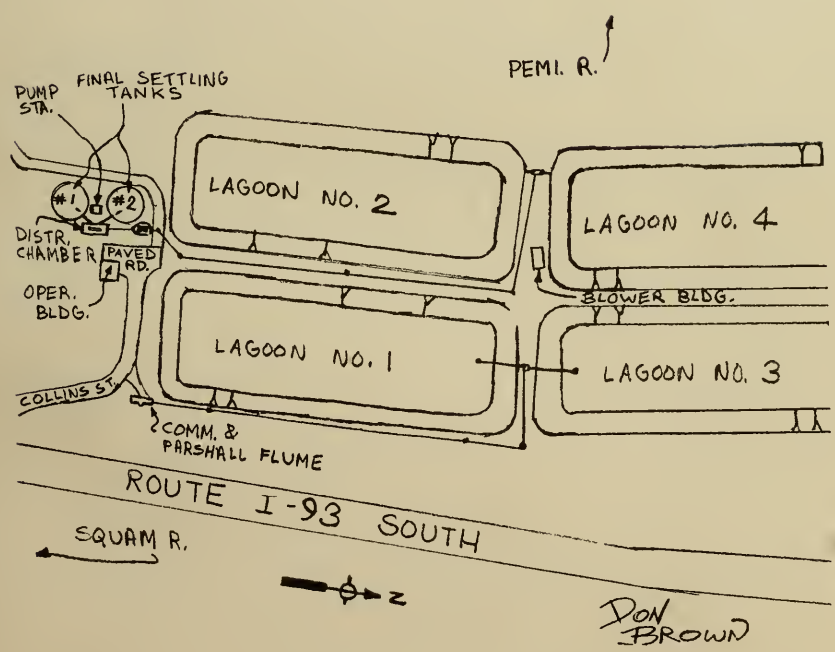 PEMI. R.
FINAL SETTLING
TANKS
PUMP
STA.
#1
#2
DISTR.
CHAMBER
PAVED
RD.
OPER.
BLDG.
LAGOON NO. 2
LAGOON NO. 4
BLOWER BLDG.
LAGOON NO. 1
LAGOON NO. 3
COLLINS ST.
COMM. &
PARSHALL FLUME
ROUTE I-93 SOUTH
SQUAM R.
Z
DON
BROWN